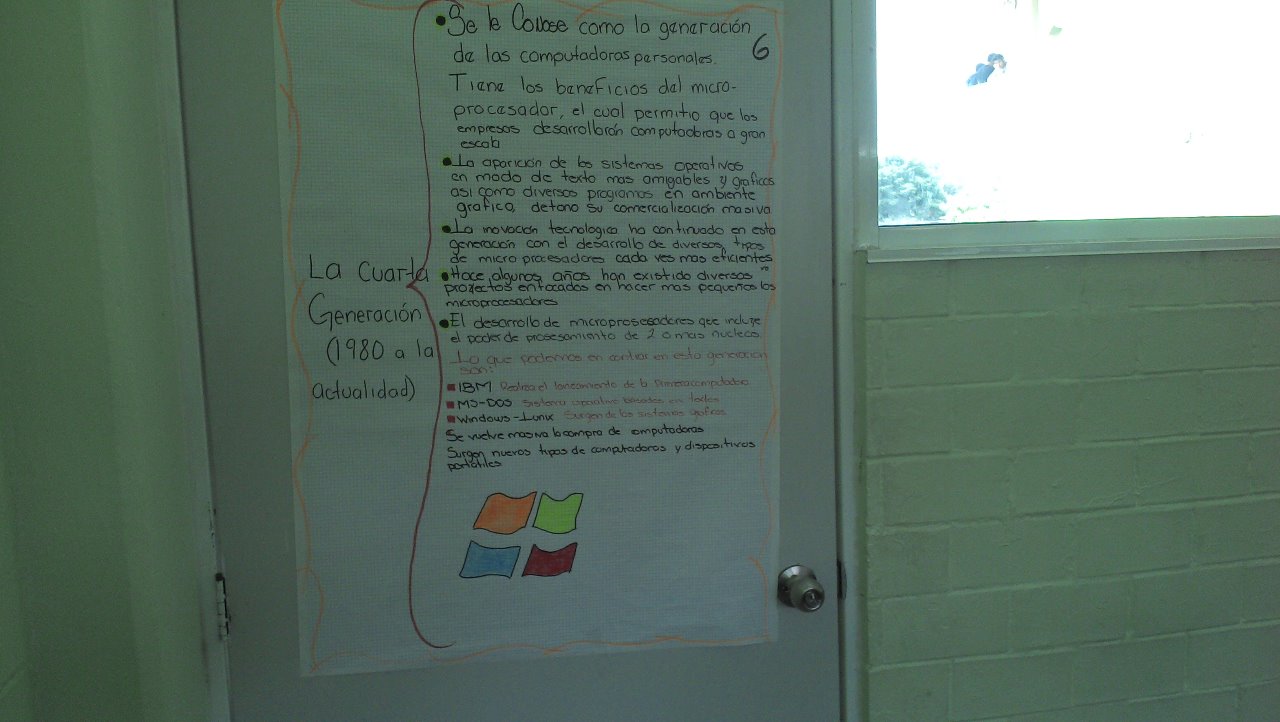 Se le Conose como la generación
6
de las computadoras personales.
Tiene los beneficios del micro-
procesador, el cual permitio que las
empresas desarrollaran computadoras a gran
escala
La aparición de los sistemas operativos
en modo de texto mas amigables y graficos
asi como diversos programas en ambiente
grafico, detono su comercialización masiva
La inovación tecnologica ha continuado en esta
generación con el desarrollo de diversos tipos
de micro procesadores cada ves mas eficientes
Hace algunos años han existido diversos
proyectos enfocados en hacer mas pequeños los
microprocesadores
El desarrollo de microprosesadores que incluye
el poder de prosesamiento de 2 o mas nucleos.
Lo que podemos en contrar en esta generación
son:
IBM Realiza el lanzamiento de la primera computadora
MS-DOS Sistema operativo basados en textos
Windows-Lunix Surgen de los sistemas graficos
Se vuelve masiva la compra de computadoras
Surgen nuevos tipos de computadoras y dispositivos
portatiles
La Cuarta
Generación
(1980 a la
actualidad)